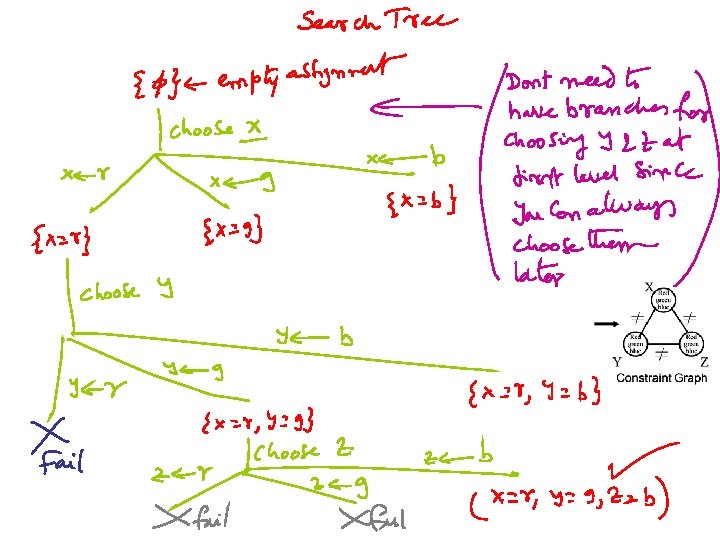 Search Tree
{φ} ← empty assignment
choose x
x←r
x←g
x←b
{x=r}
{x=g}
{x=b}
Dont need to
have branches for
choosing y & z at
first level since
you can always
choose them
later
choose y
y←r
y←g
y←b
X
Red
green
blue
≠
≠
Red
green
blue
Red
green
blue
Y
≠
Z
Constraint Graph
X
Fail
{x=r, y=g}
{x=r, y=b}
choose z
z←r
z←g
z←b
X fail
X fail
(x=r, y=g, z=b)